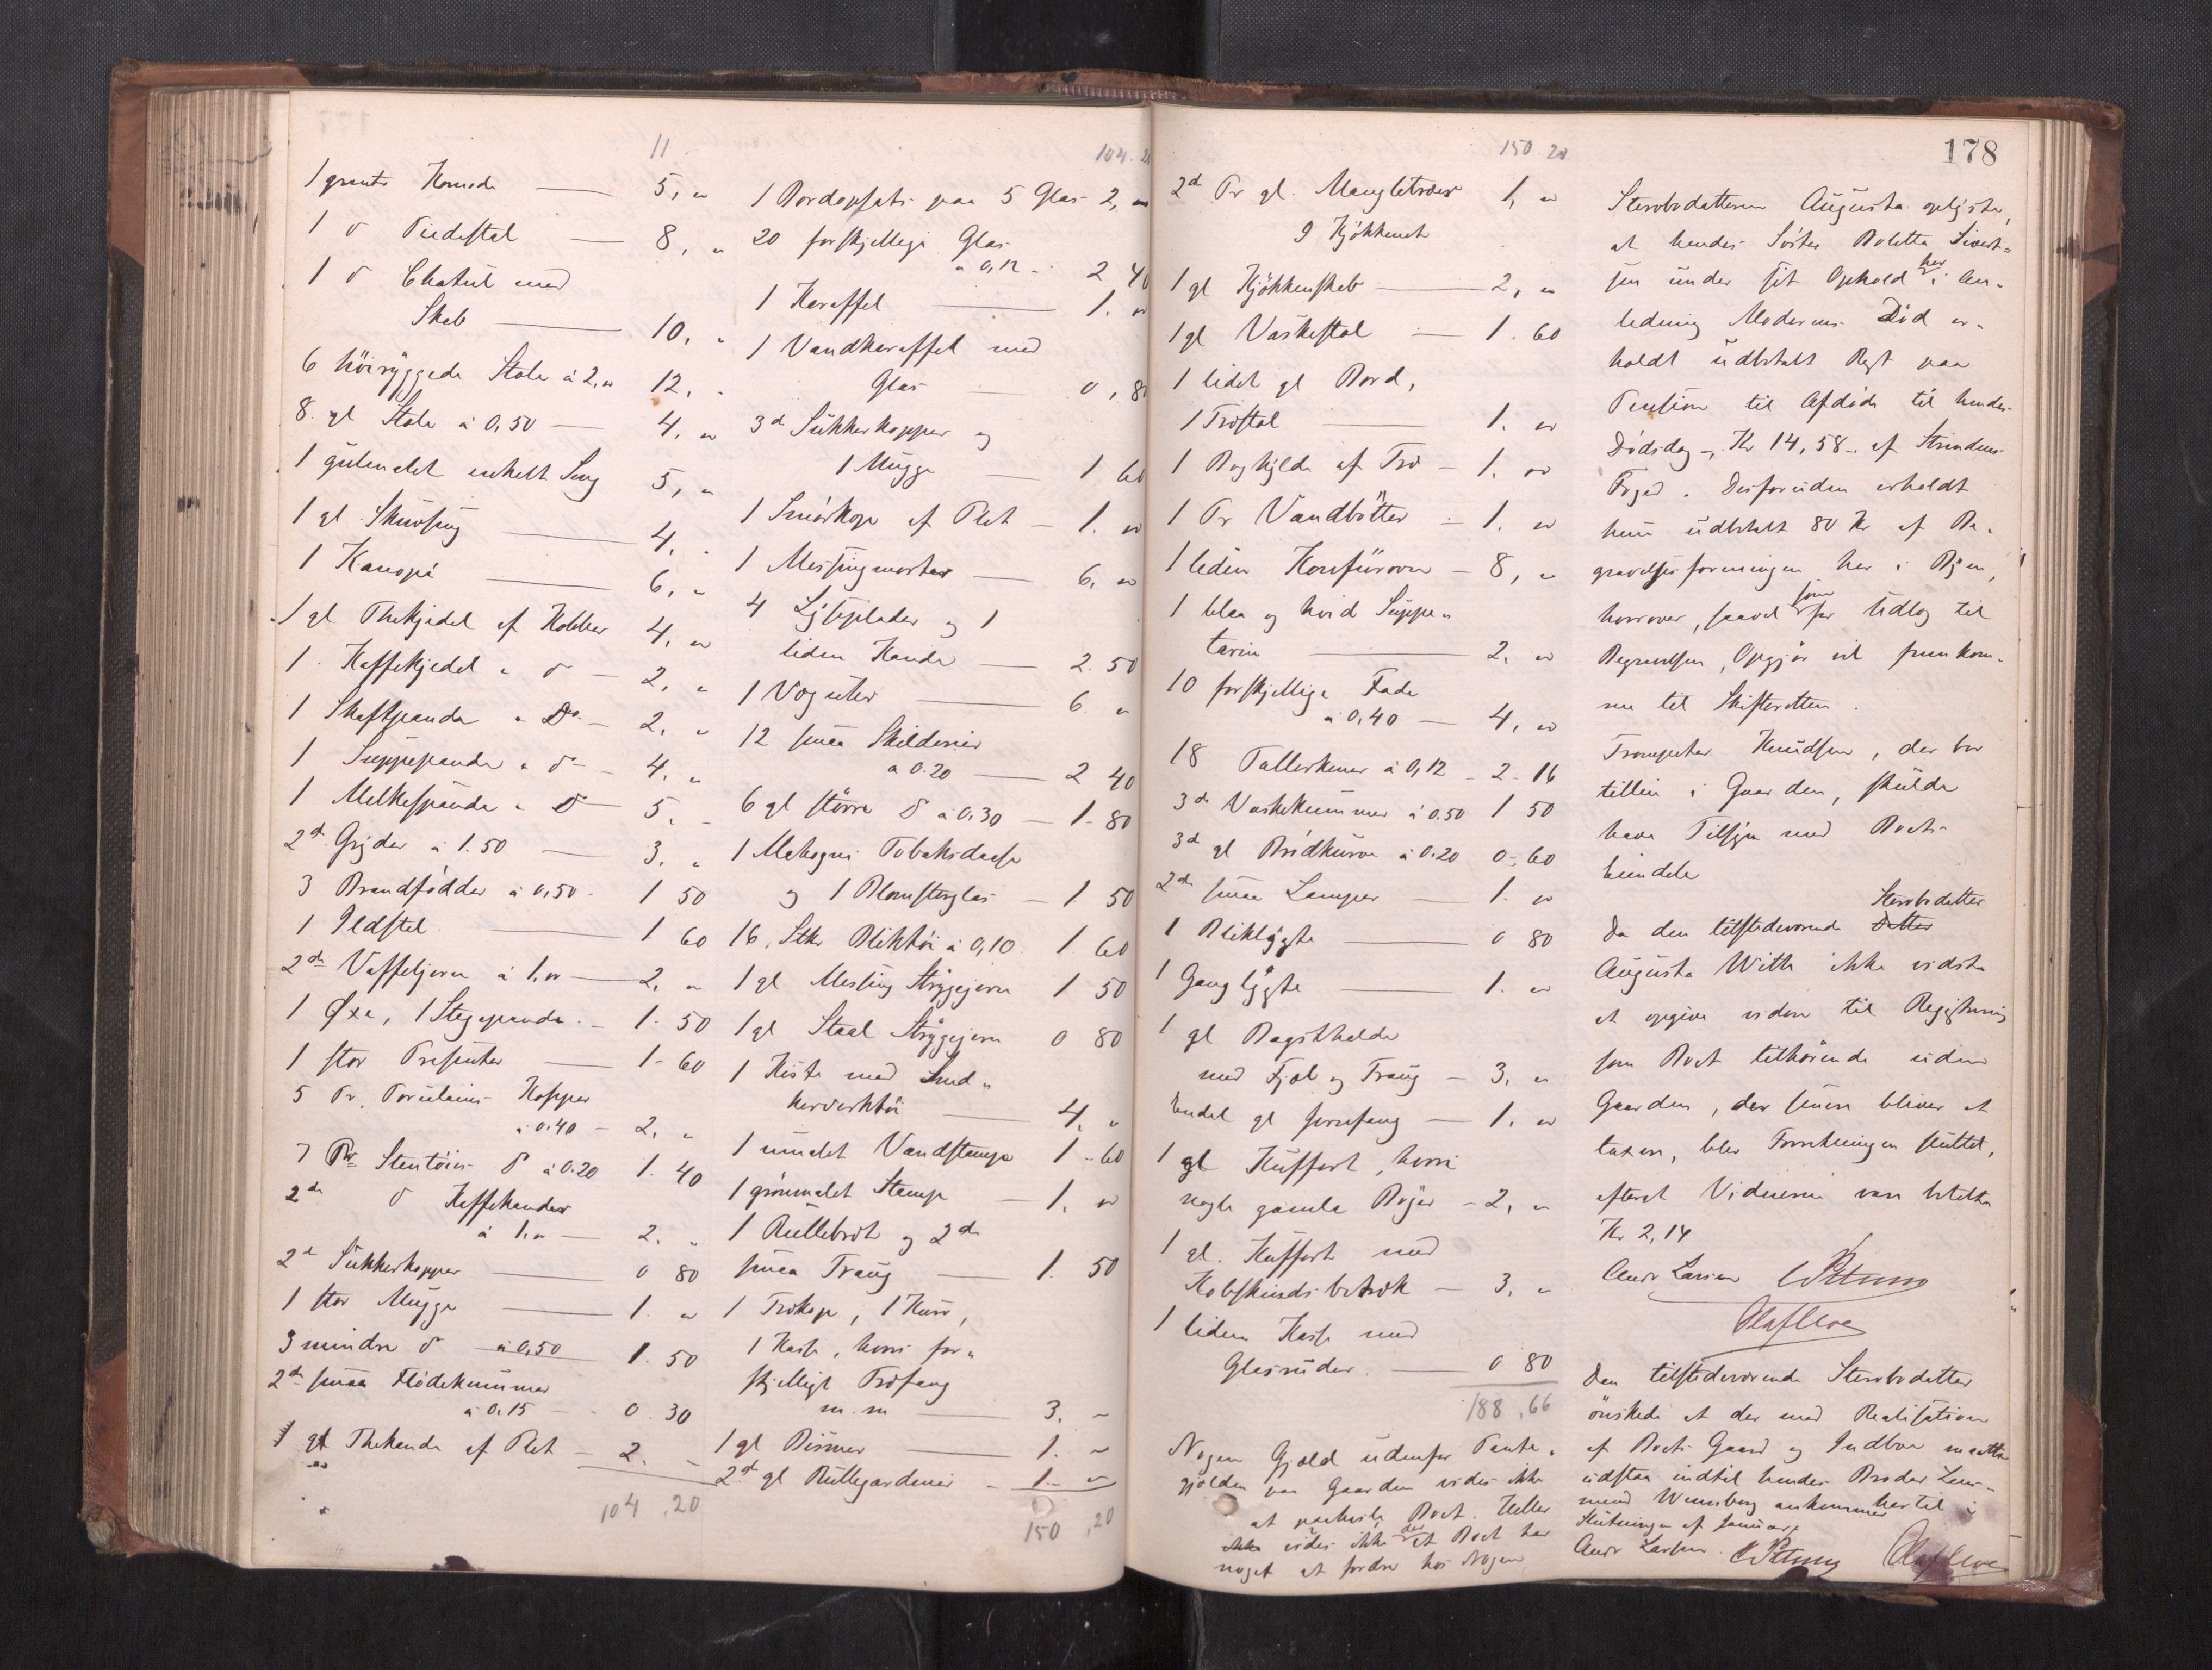 11
1 grønt Komode — 5, "
1 do Piedestal — 8, "
1 do Chatul med
Skab — 10, "
6 höiryggede Stole à 2, " 12, "
8 gl Stole à 0,50 — 4, "
1 gulmalet enkelt Seng 5, "
1 gl Skuvseng — 4, "
1 Kanapé — 6, "
1 gl Thekjedel af Kobber 4, "
1 Kaffekjedel " do — 2, "
1 Skaftpande " Do — 2, "
1 Suppepande " do — 4, "
1 Melkespande " Do 5, "
2de Gryder à 1.50 — 3, "
3 Brandfødder à 0,50 - 1 50
1 Ildstel — 1 60
2de Vaffeljern à 1, " — 2, "
1 Øxe, 1 Stegepande - 1. 50
1 stor Presenter — 1- 60
5 Pr. Porcelains Kopper
à 0.40 — 2, "
7 Pr Stentøies do à 0.20 1. 40
2de do Kaffekander
à 1, " — 2, "
2de Sukkerkopper — 0 80
1 stor Mugge — 1. "
3 mindre do à 0,50 1. 50
2de smaa Flødekummer
à 0.15 — 0. 30
1 gl Thekande af Plet — 2. "
104 ,20
104. 20
1 Bordopsats paa 5 Glas 2, "
20 forskjellige Glas
à 0,12 - 2 40
1 Karaffel — 1. "
1 Vandkaraffel med
Glas — 0, 80
3de Sukkerkopper og
1 Mugge — 1 60
1 Smørkop af Plet — 1. "
1 Messingmorter — 6, "
4 Lyseplader og 1
liden Kande — 2. 50
1 Voguhr — 6 "
12 smaa Skilderier
à 0.20 — 2 40
6 gl større do à 0.30 — 1- 80
1 Mahogni Tobaksdaase
og 1 Blomsterglas — 1 50
16 Stkr Bliktøi à 0,10. 1 60
1 gl Messing Strygejern 1 50
1 gl Staal Strygejern 0 80
1 Kiste med Sned"
kerverktøi — 4, "
1 umalet Vandstampe 1 - 60
1 grønmalet Stampe — 1, "
1 Rullebret og 2de
smaa Traug — 1. 50
1 Trækop, 1 Kurv,
1 Kasse, hvori for"
skjelligt Træfang
m. m — 3, "
1 gl Bismer — 1. "
2de gl Rullegardiner — 1.- "
150 ,20
150 20
178
2de Pr gl. Mangletræer 1, "
I Kjøkkenet
1 gl Kjøkkenskab — 2, "
1 gl Vaskestol — 1. 60
1 lidet gl Bord,
1 Træstol — 1. "
1 Boghylde af Træ — 1. "
1 Pr Vandbøtter — 1. "
1 liden Komfürovn — 8, "
1 blaa og hvid Suppe"
terin — 2, "
10 forskjellige Fade
à 0,40 — 4, "
18 Tallerkener à 0,12 - 2- 16
3de Vaskekummer à 0.50 1 50
3de gl Brødkurve à 0.20 0- 60
2de smaa Lamper — 1. "
1 Bliklygte — 0 80
1 Ganglygte — 1. "
1 gl Bagsthelde
med Fjøl og Traug — 3, "
Endel gl Jernfang — 1. "
1 gl Kuffert, hvori
nogle gamle Bøger — 2, "
1 gl. Kuffert med
Kobskinds betræk — 3, "
1 liden Kasse med
Glasruder — 0 80
188 ,66
Nogen Gjæld udenfor Pante-
gjælden paa Gaarden vides ikke
at paahvile Boet. Heller
ikke vides ikke der at Boet har
noget at fordre hos Nogen
Stervbodatteren Augusta oplyste,
at hendes Søster Boletta Sivert-
sen under sit Ophold her i An-
ledning Moderens Død er-
holdt udbetalt Rest paa
Pension til Afdøde til hendes
Dødsdag -, Kr 14,58 -, af Strindens
Foged. Desforuden erholdt
hun udbetalt 80 Kr af Be-
gravelsesforeningen her i Byen,
hvorover, saavel som for Udlæg til
Begravelsen, Opgjør vil fremkom-
me til Skifteretten.
Trompeter Knudsen, der bor
tilleie i Gaarden, skulde
have Tilsyn med Boets
Eiendele
Da den tilstedeværende Datter Stervbodatter
Augusta With ikke vidste
at opgive videre til Registrering
som Boet tilhørende uden
Gaarden, der senere bliver at
taxere, blev Forretningen sluttet,
efterat Vidnerne vare betalte
Kr 2,14
Andr Larsen
Den tilstedeværende Stervbodatter
ønskede at der med Realisation
af Boets Gaard og Indboe maatte
udstaa indtil hendes Broder Lens-
mand Wennberg ankommer hertil i
Slutningen af Januar
Andr Larsen.